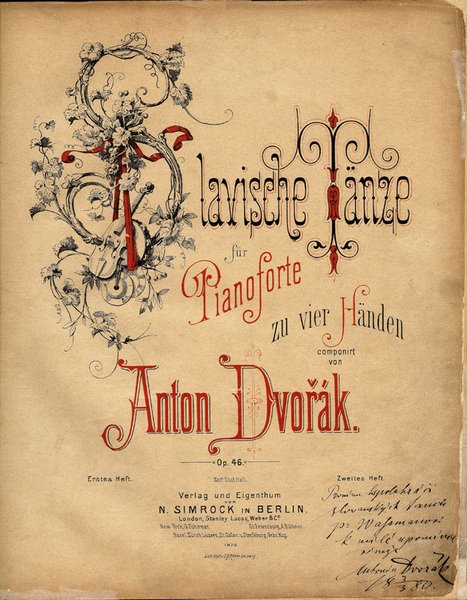 Slavische Tänze
für
Pianoforte
zu vier Händen
componirt
von
Anton Dvořák.
Op. 46.
Erstes Heft.
Zweites Heft.
Verlag und Eigenthum
von
N. SIMROCK IN BERLIN.
London, Stanley Lucas, Weber & Co.
New-York, G. Schirmer.
St. Petersburg, A. Büttner.
Basel, Zürich, Luzern, St. Gallen u. Strassburg, Gebr. Hug.
1878.
slovanských tanců
p.
k milé
Antonín Dvořák